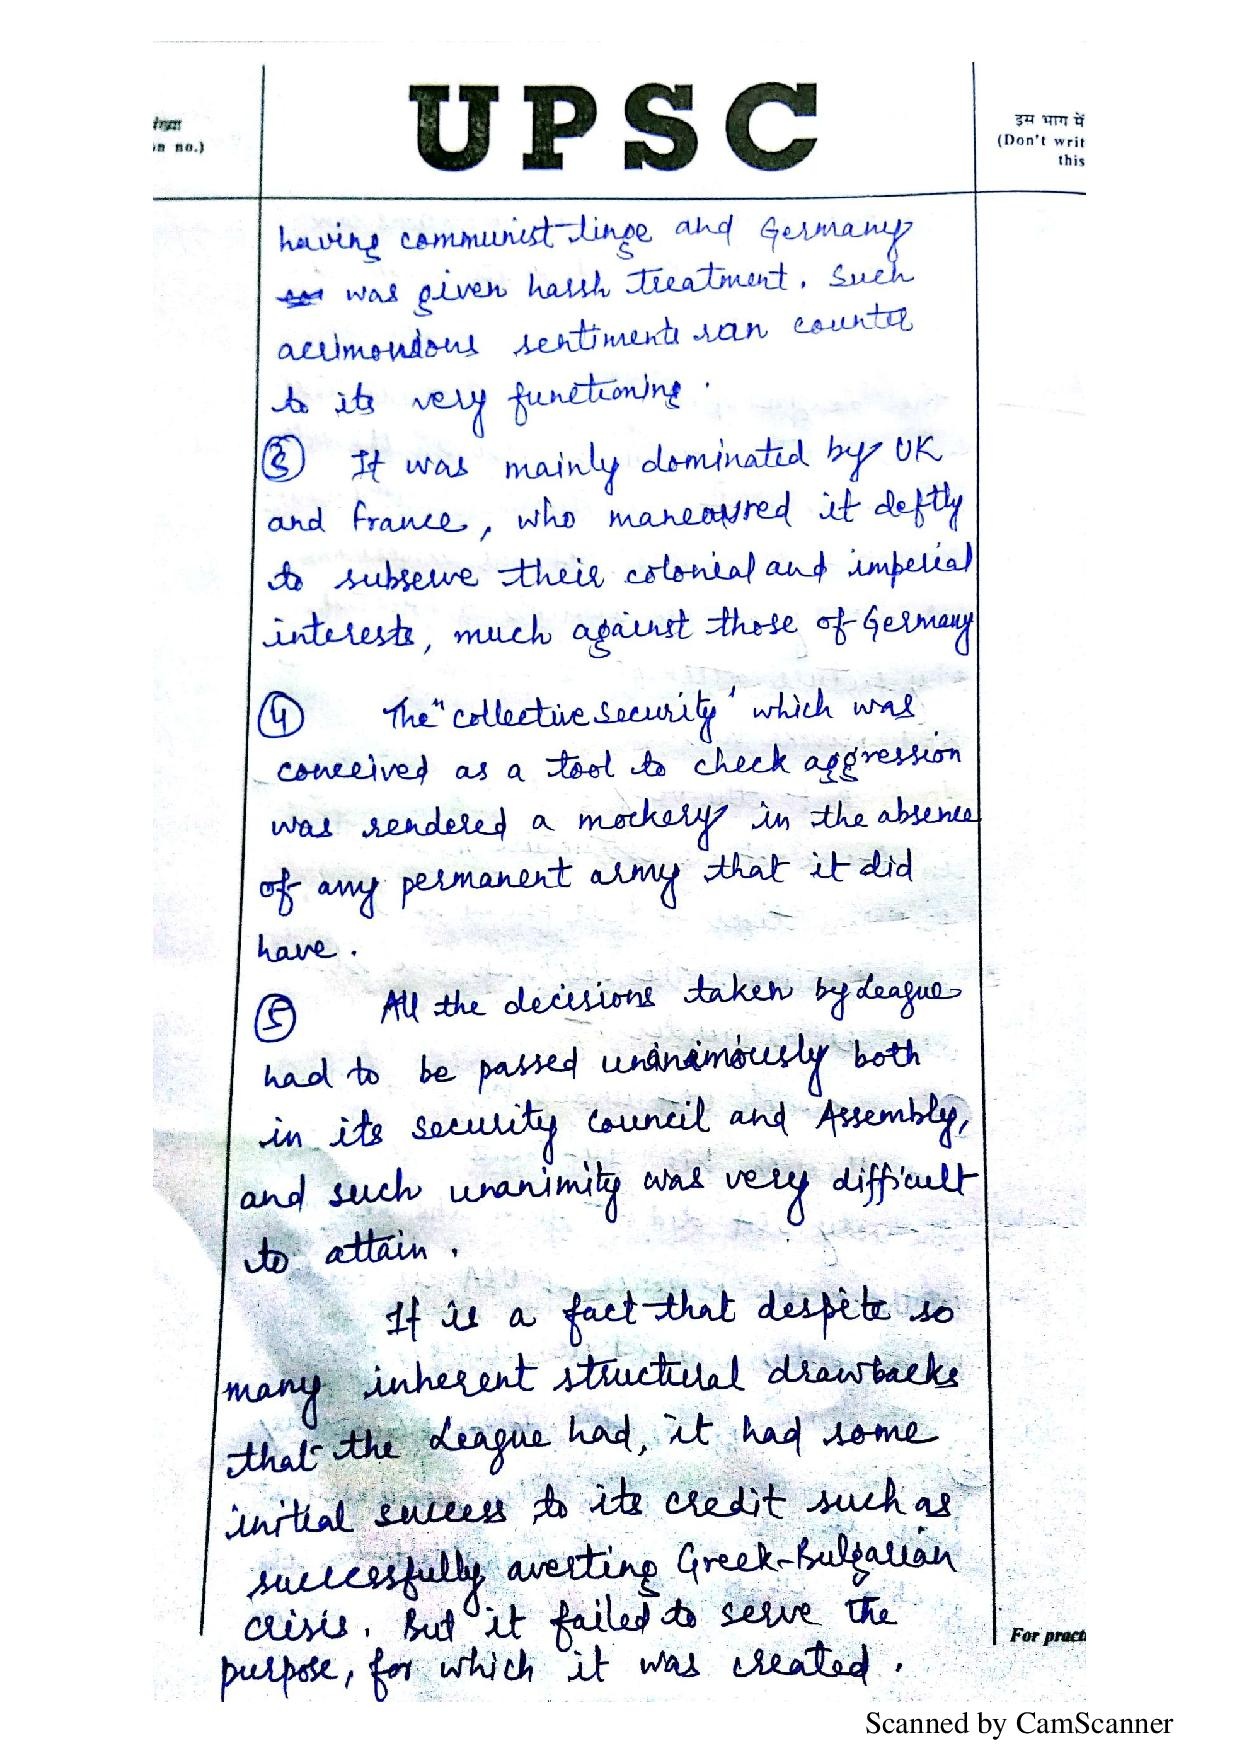 UPSC
ंख्या
n no.)
इस भाग में
(Don't writ
this
having communist tinge and Germany
was given harsh treatment. Such
acrimonious sentiments ran counter
to its very functioning.
3 It was mainly dominated by UK
and France, who maneovred it deftly
to subserve their colonial and imperial
interests, much against those of Germany
4 The "collective security' which was
conceived as a tool to check aggression
was rendered a mockery in the absence
of any permanent army that it did
have.
5 All the decisions taken by League
had to be passed unanimously both
in its security council and Assembly,
and such unanimity was very difficult
to attain.
It is a fact that despite so
many inherent structural drawbacks
that the League had, it had some
initial success to its credit such as
successfully averting Greek-Bulgarian
crisis. But it failed to serve the
purpose, for which it was created.
For pract
Scanned by CamScanner